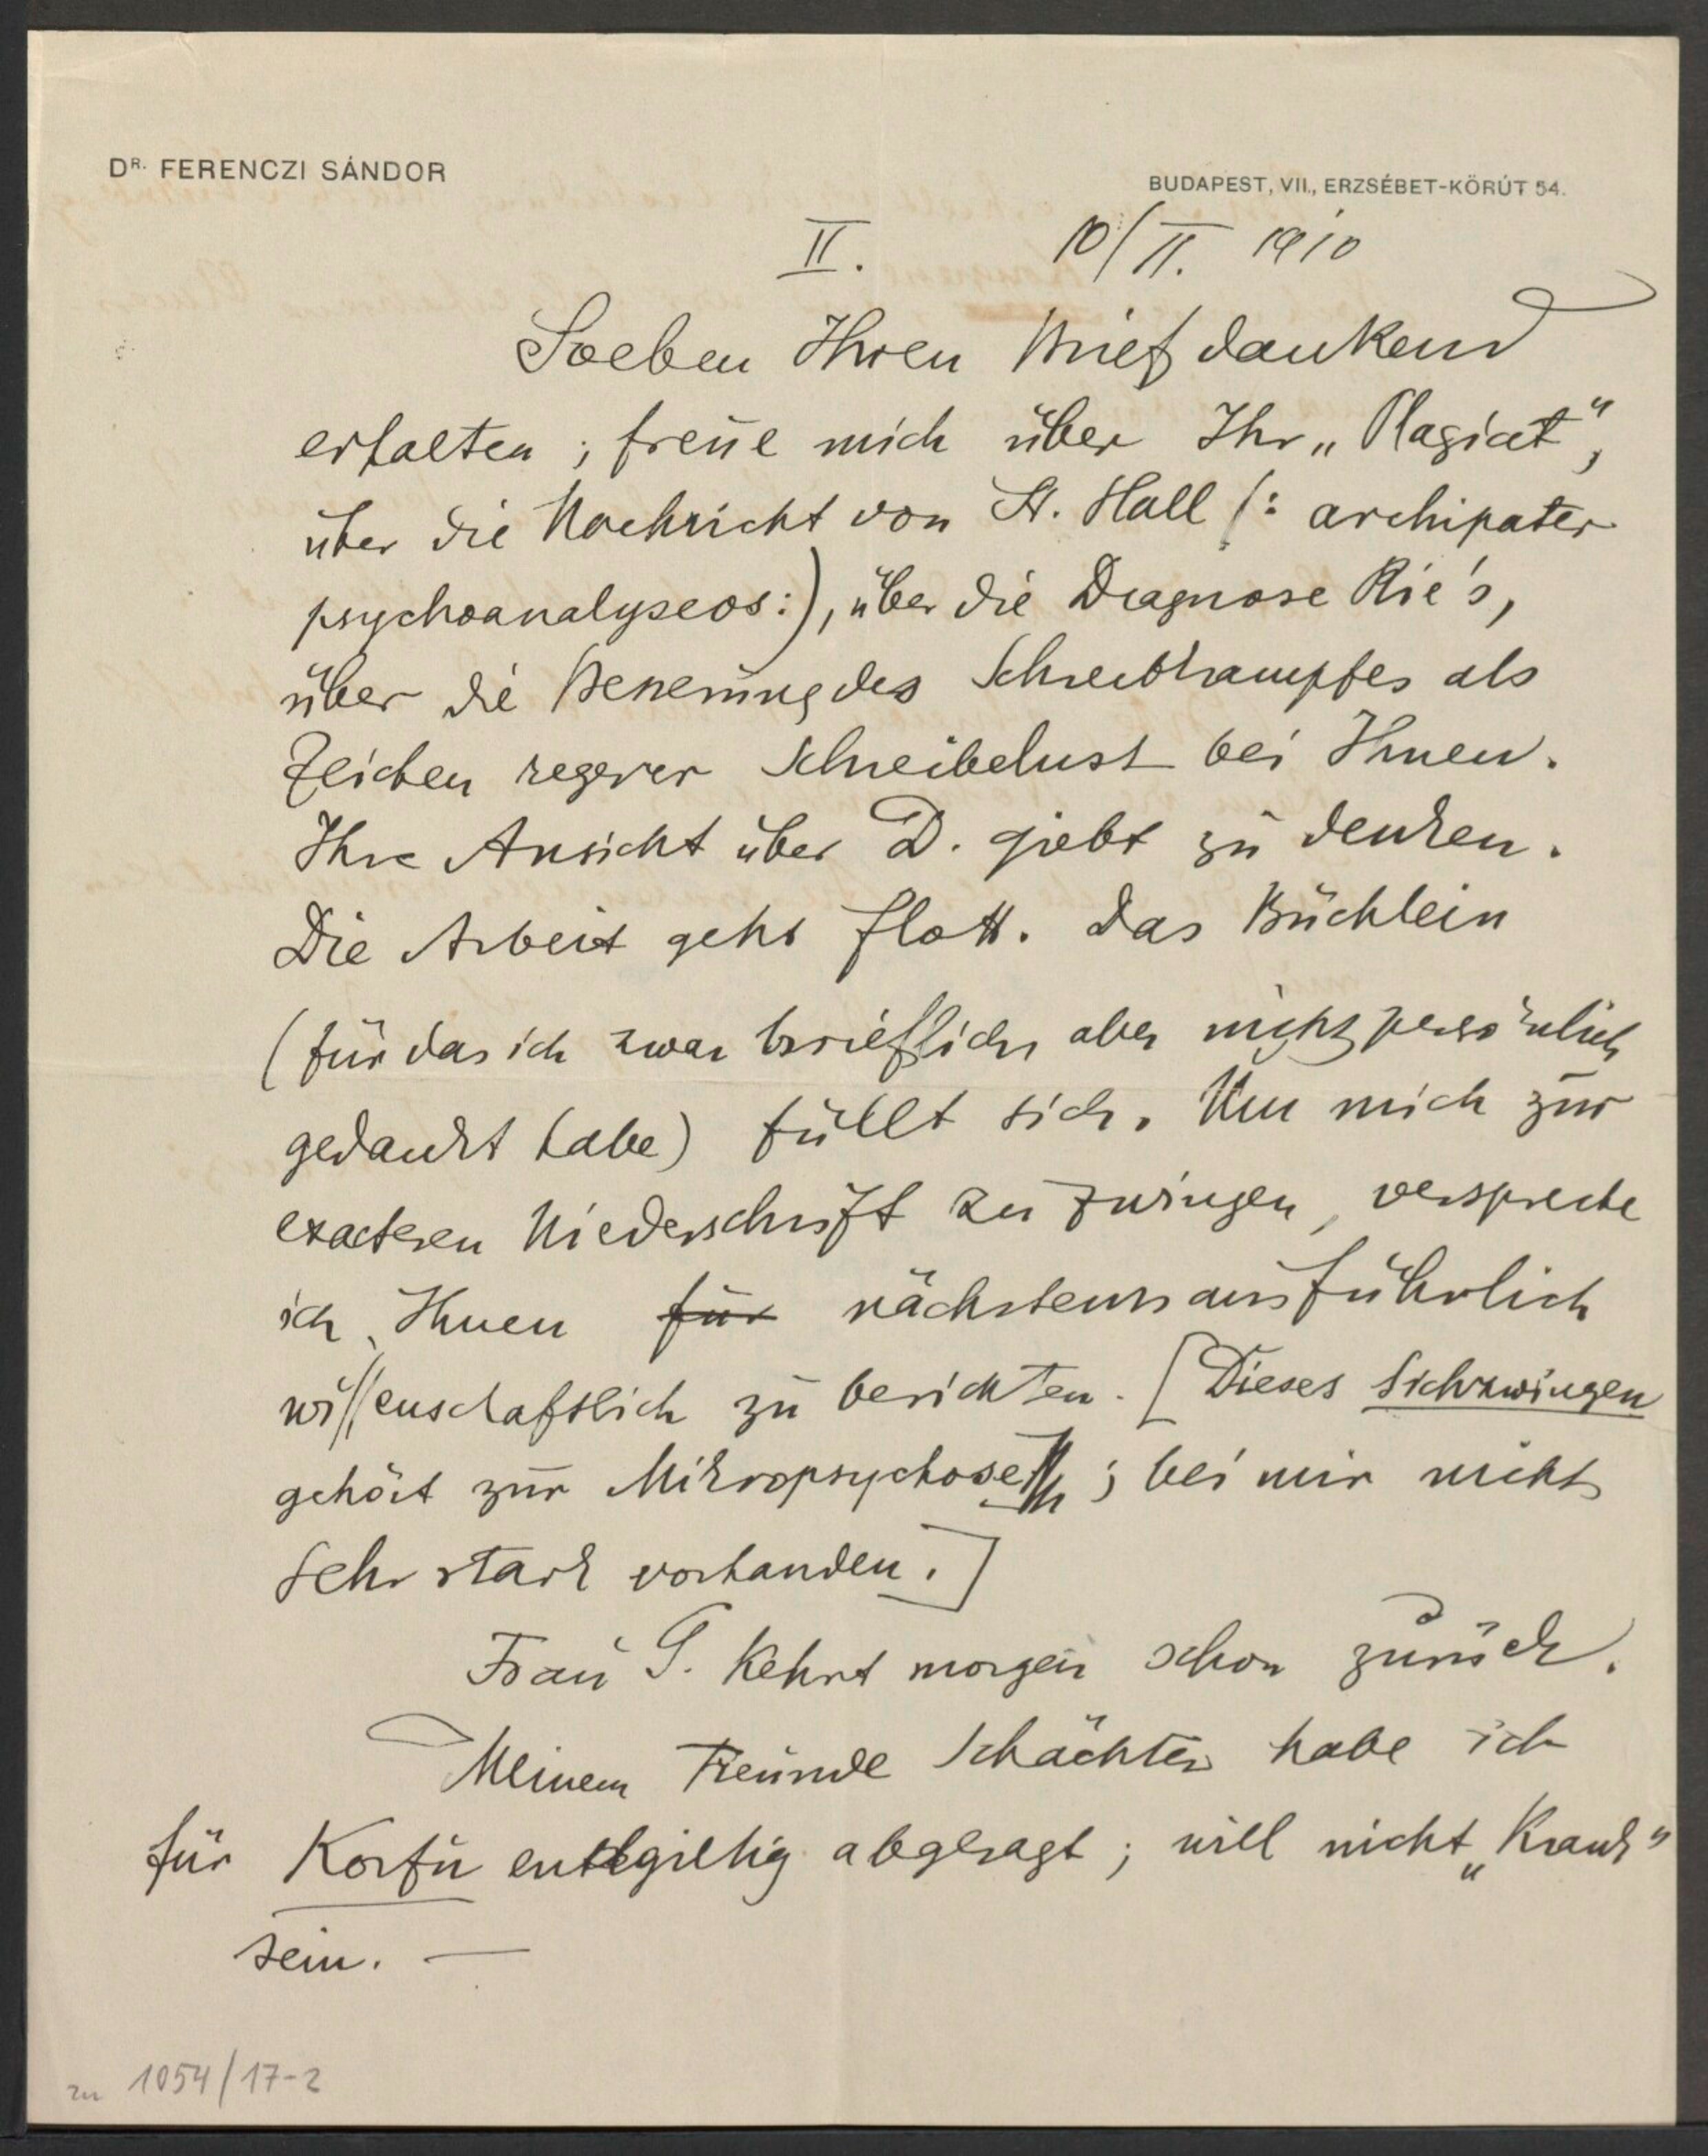 DR. FERENCZI SÁNDOR
BUDAPEST, VII., ERZSÉBET-KÖRÚT 54.
II. 10/II. 1910
Soeben Ihren Brief dankend
erhalten; freue mich über Ihr „Plagiat",
über die Nachricht von St. Hall (: archipater
psychoanalyseos:), über die Diagnose Rie's,
über die des Schreibkrampfes als
Zeichen regerer Schreibelust bei Ihnen.
Ihre Ansicht über D. giebt zu denken.
Die Arbeit geht flott. Das Büchlein
(für das ich zwar brieflich aber nicht persönlich
gedankt habe) füllt sich. Um mich zur
exacteren Niederschrift zu zwingen, verspreche
ich Ihnen für nächstens ausführlich
wissenschaftlich zu berichten. [Dieses Sichzwingen
gehört zur Mikropsychose; bei mir nicht
sehr stark vorhanden.]
Frau G. kehrt morgen schon zurück.
Meinem Freunde Schächter habe ich
für Korfu entgiltig abgesagt; will nicht „Krank"
sein. —
zu 1054/17-2